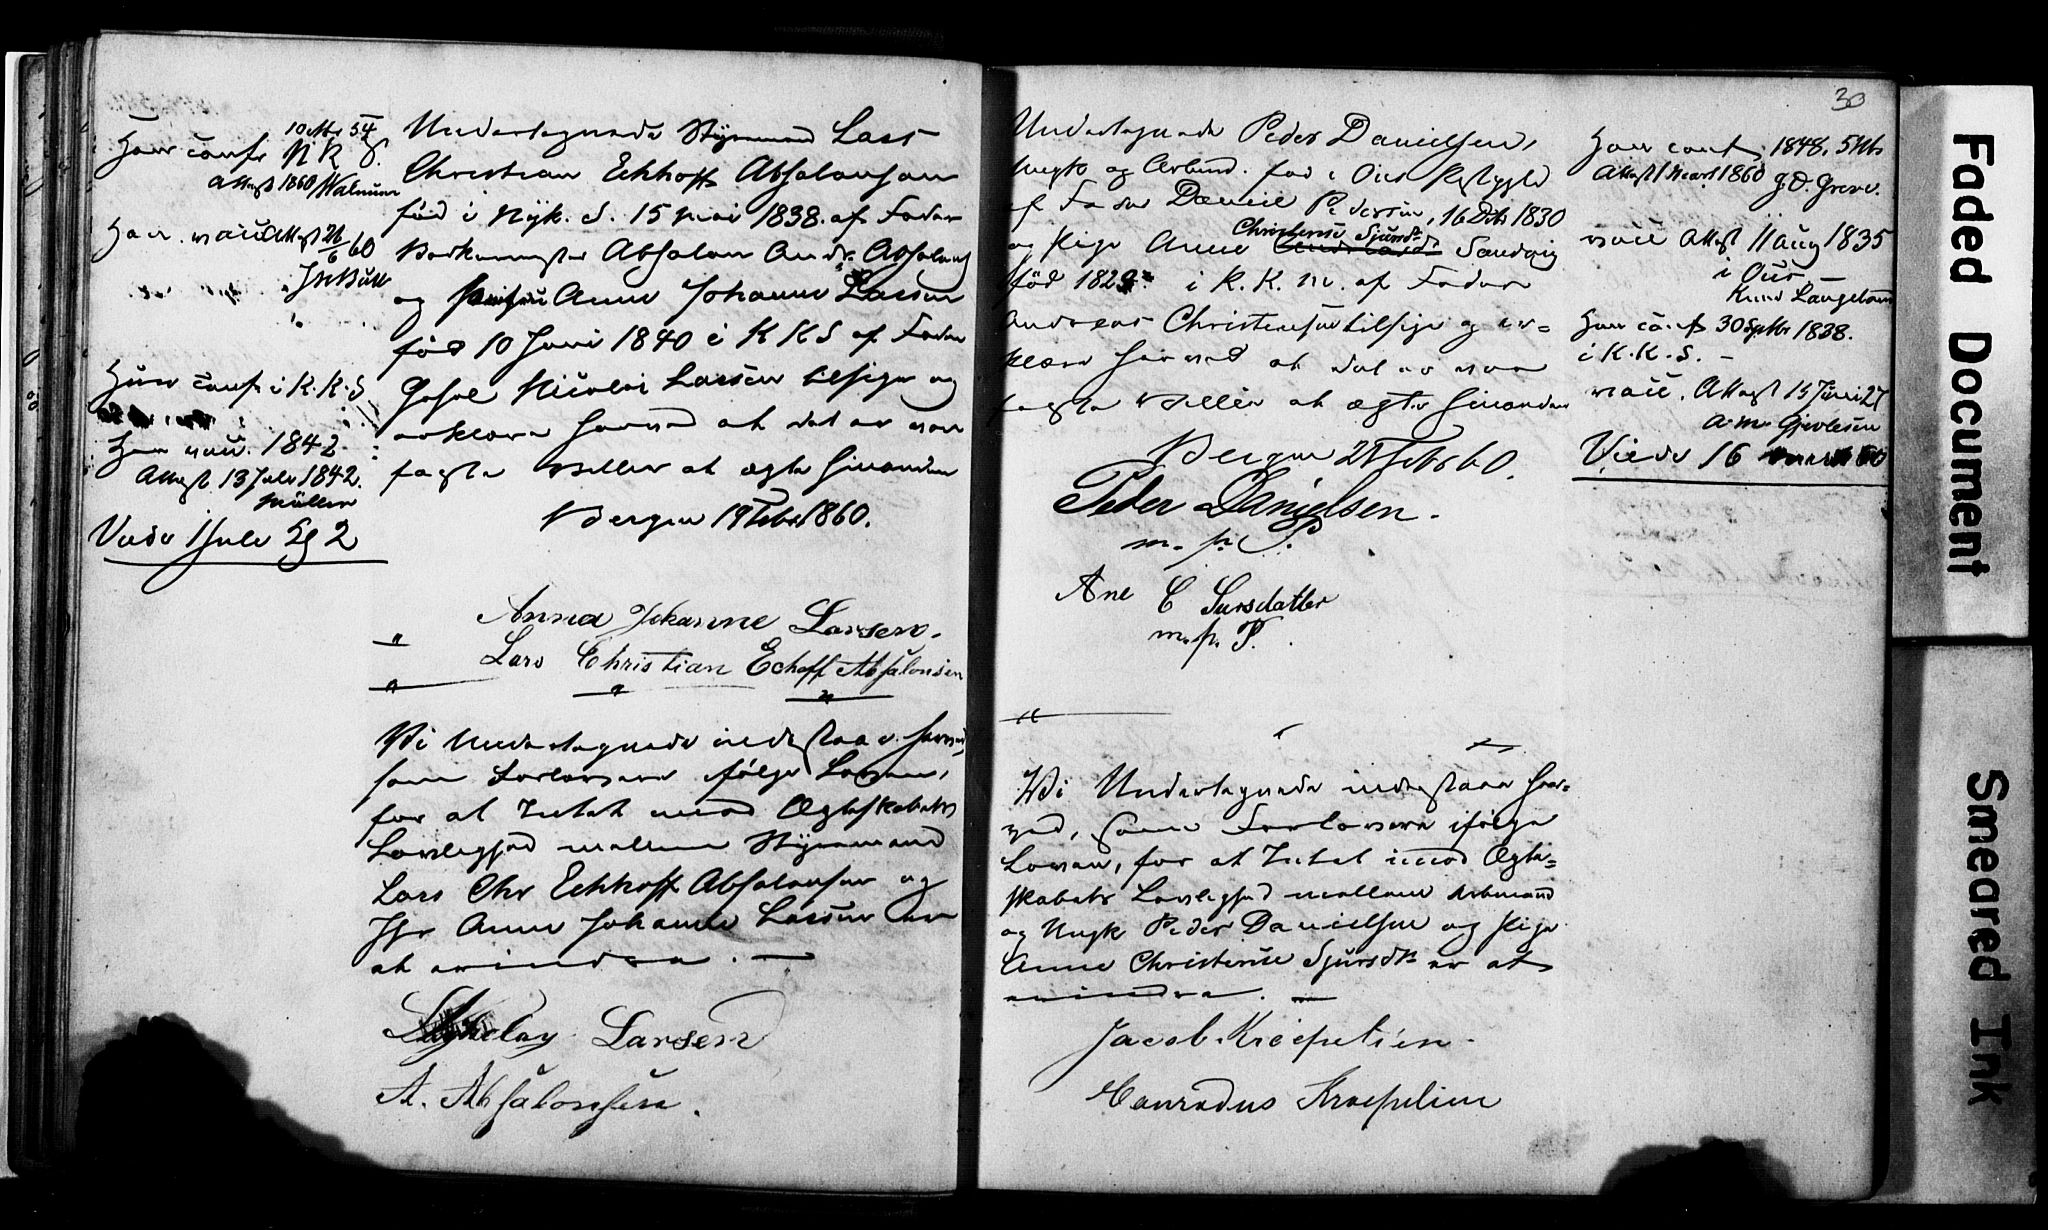 10 Octbr 54
Han conf N K S.
Attest 1860
Han vacc Attest 26/6 60
Hun conf i K. K. S
Hun vacc. 1842
Attest 13 Juli 1842.
Müller
Viede 1 Juli
Undertegnede Styrmand Lars
Christian Eckhoff Absalonsen
fød i Nyk. S. 15 Mai 1838. af Fader
Absalon Andr. Absalons
og Anne Johanne Larsen
fød 10 Juni 1840 i K K S af Fader
Nicolai Larsen tilsige og
erklære herved at det er vor
faste Villie at ægte hinanden
Bergen 19 Febr 1860.
Anna Johanne Larsen.
Lars Christian Echoff Absalonsen
Vi Undertegnede indestaae herved
som Forlovere ifølge Loven,
for at Intet imod Ægteskabets
Lovlighed mellem Styrmand
Lars Chr Eckhoff Absalonsen og
Jfr Anne Johanne Larsen er
at erindre.
Larsen
A. Absalonsen.
30
Undertegnede Peder Danielsen,
Ungk og Arbmd. fød i Ous Prstgjeld
af Fader Daniel Pedersen, 16 Dcbr 1830
Christense Sjursdr
og Pige Anne Sandvig
fød 1823 i K. K. af Fader
Andreas Christensen tilsige og er=
klære herved at det er vor
faste Villie at ægte hinanden
Bergen Febr 60.
Peder Danielsen.
m. p. P.
Ane C Sursdatter
m. p. P.
Vi Undertegnede indestaae her=
ved, som Forlovere ifølge
Loven, for at Intet imod Ægte=
skabets Lovlighed mellem Arbmand
og Ungk Peder Danielsen og Pige
Anne Christense Sjursdr er at
erindre.
Jacob Kræpelien.
Conradus Kræpelien
Han conf 1848, 5
Attest 1 Marts 1860 Greve.
vacc Attest 11 Aug 1835
i Ous
Hun conf 30 Sptbr 1838.
i K. K. S.
vacc. Attest 15 Juni 27
Viede 16 60
Faded Document
Smeared Ink